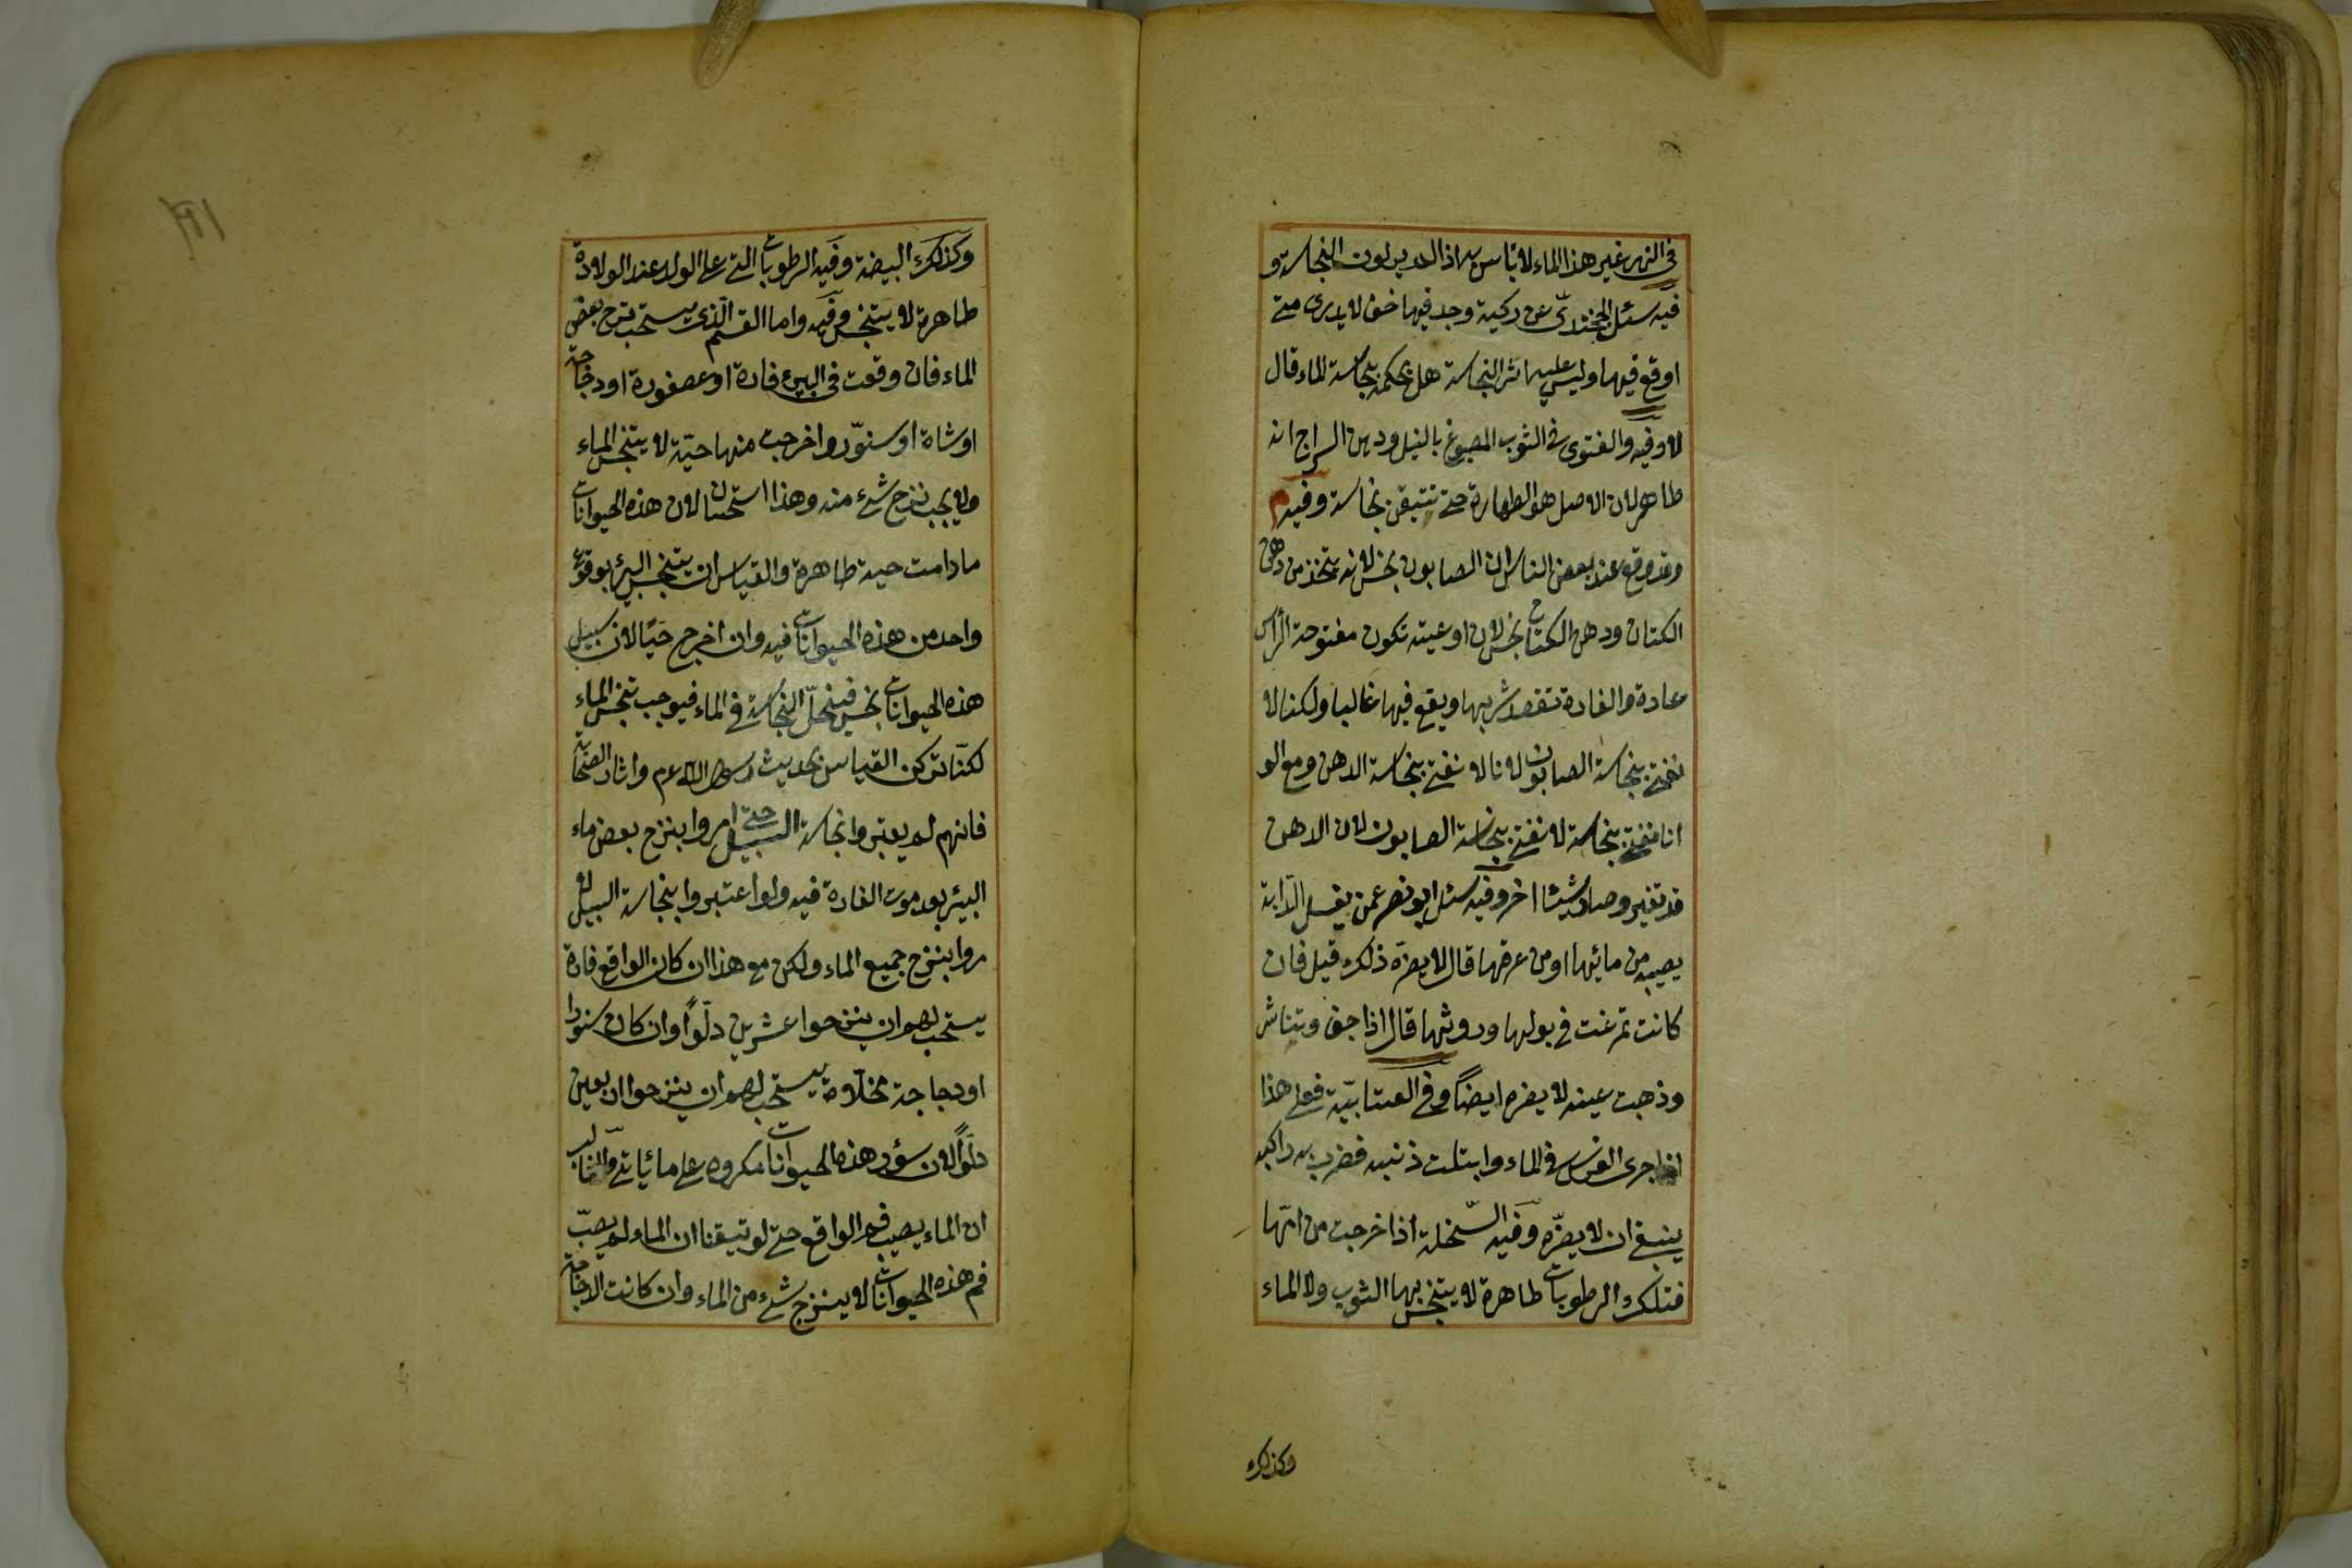 في النهر غير هذا الماء لا بأس به اذا لم ير لون النجاسة و
فيه سئل الخجندي عن ركية وجد فيها خف لا يدرى متى
اوقع فيها وليس عليه اثر النجاسة هل يحكم بنجاسة الماء قال
لا وفيه والفتوى في الثوب المصبوغ بالنيل ودهن السراج انه
طاهر لان الاصل هو الطهارة حتى تتيقن نجاسة وفيه م
وقد وقع عند بعض الناس ان الصابون نجس لانه يتخذ من دهن
الكتان ودهن الكتان نجس لان اوعيته تكون مفتوحة الرأس
عادة والفارة تقصد شربها ويقع فيها غالبا ولكنا لا
نفتي بنجاسة الصابون لانا لا نفتي بنجاسة الدهن ومع الو
انا نفتي بنجاسة لا نفتي بنجاسة الصابون لان الدهن
قد تغير وصار شيئا اخر وفيه سئل ابو نصر عمن يغسل الدابة
يصيبه من مائها او من عرقها قال لا يضره ذلك قيل فان
كانت تمرغت في بولها وروثها قال اذا جف وتناش
وذهبت عينه لا يضره ايضاً وفي العتابيّة فعلى هذا
اذا جرى الفرس في الماء وابتلت ذنبه فضرب به راكبه
ينبغي ان لا يضرّه وفيه السخلة اذا خرجت من امّها
فتلك الرطوبات طاهرة لا يتنجس بها الثوب ولا الماء
وكذلك
وكذلك البيضة وفيه الرطوبات التي على الولد عند الولادة
طاهرة لا يتنجس وفيه واما القسم الذي يستحب نزح بعض
الماء فان وقعت في البير فارة او عصفورة او دجاجة
او شاة او سنوّر واخرجت منها حيّة لا يتنجس الماء
ولا يجب نزح شئ منه وهذا استحسان لان هذه الحيوانات
ما دامت حية طاهرة والقياس ان يتنجس البئر بوقوع
واحد من هذه الحيوانات فيه وان اخرج حيًا لان سبيل
هذه الحيوانات نجس فينحلّ النجاسة في الماء فيوجب تنجس الماء
لكنّا تركن القياس بحديث رسول الله عم واثار الصحابة
فانهم لم يعتبروا نجاسة السبيل حتى امروا بنزح بعض ماء
البئر بعد موت الفارة فيه ولو اعتبروا بنجاسة السبيل لا
مروا بنزح جميع الماء ولكن مع هذا ان كان الواقع فارة
يستحب لهم ان ينزحوا عشرين دلوًا وان كان سنورا
او دجاجة مخلّاة يستحب لهم ان ينزحوا اربعين
دلوًا لان سؤر هذه الحيوانات مكروه على ما يأتي والغالب
ان الماء يصيب فم الواقع حتى لو تيقنا ان الماء لم يصب
فم هذه الحيوانات لا ينزح شئ من الماء وان كانت الدجاجة